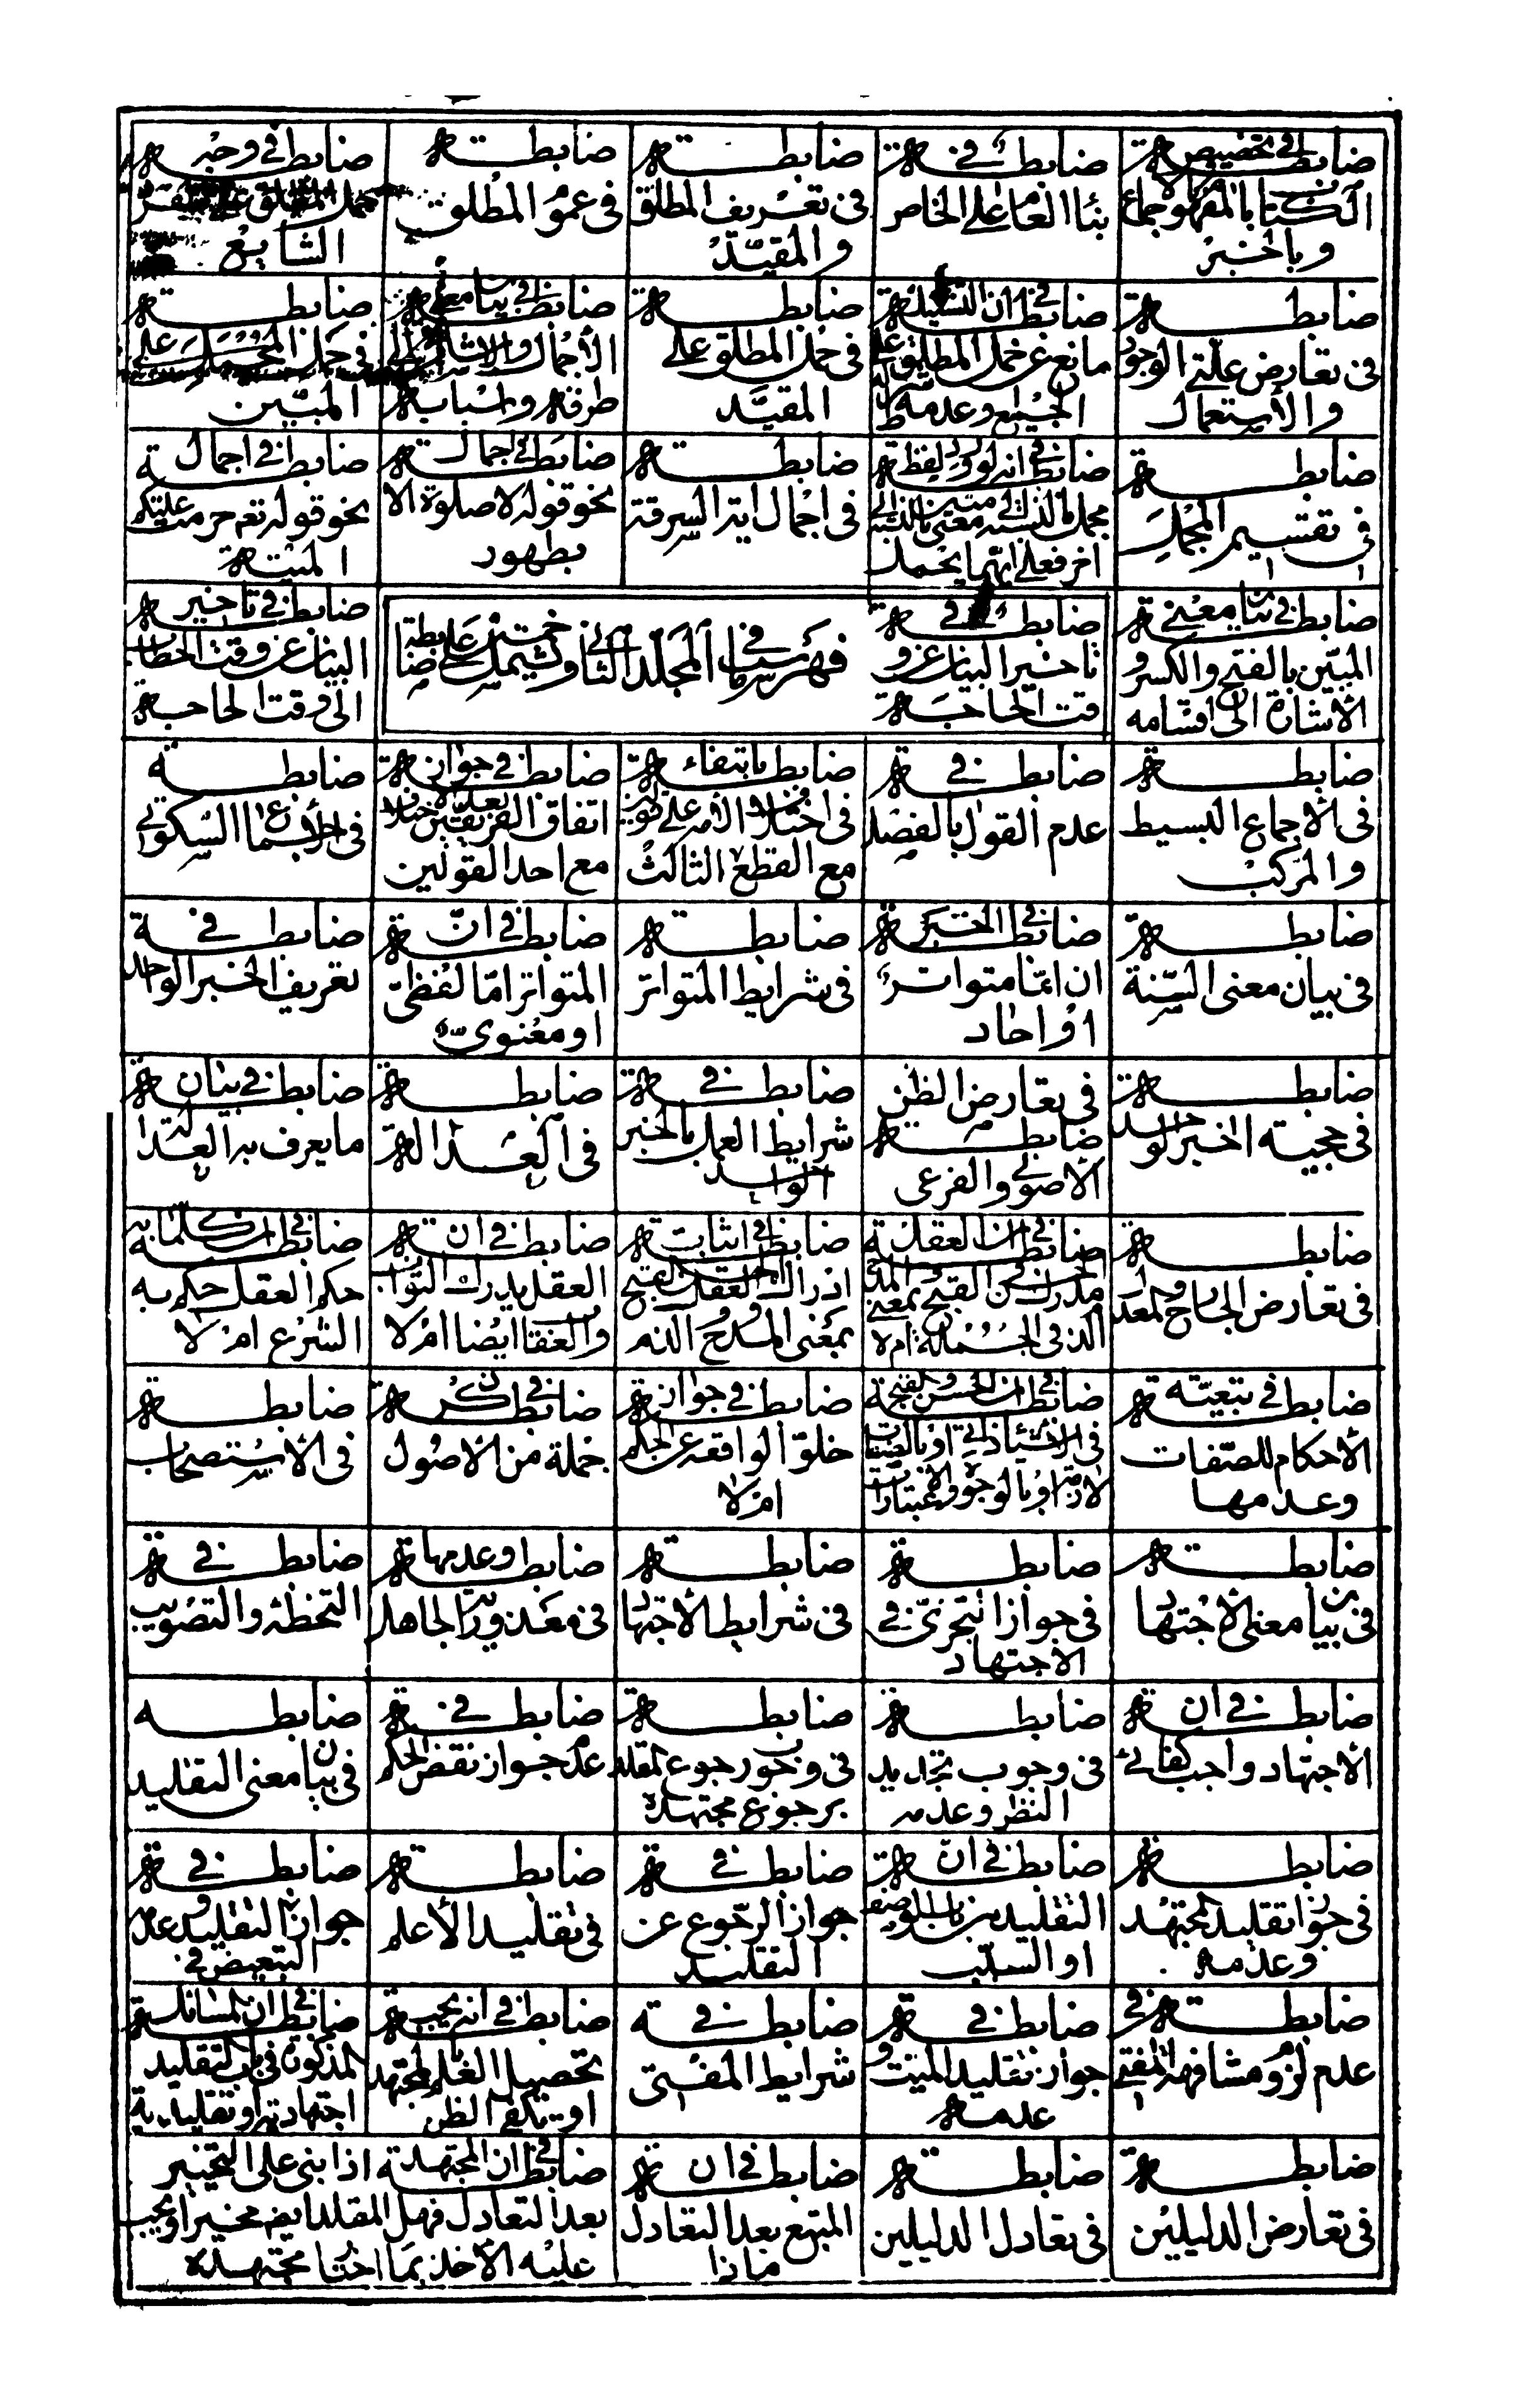 ضابطة في تخصيص
الكتاب بالمفهوم والاجماع
وبالخبر
ضابطة في
بناء العام على الخاص
ضابطة
في تعريف المطلق
والمقيّد
ضابطة
في عموم المطلق
ضابطة في وجه
حمل المطلق على الفرد
الشايع
ضابطة
في تعارض علتي الوجود
والاستعمال
ضابطة في ان التشكيك
مانع عن حمل المطلق على
الجميع وعدمه
ضابطة
في حمل المطلق على
المقيّد
ضابطة في بيان معنى
الأجمال والاشارة الى
طرقه واسبابه
ضابطة
في حمل المجمل على
المبيّن
ضابطة
في تقسيم المجمل
ضابطة في انه لو ورد لفظ
مجمل بالنسبة الى معنى مبيّن بالنسبة الى
اخر فعلى ايّهما يحمل
ضابطة
في اجمال اية السرقة
ضابطة في اجمال
نحو قوله لا صلوة الا
بطهور
ضابطة في اجمال
نحو قوله تعم حرمت عليكم
الميتة
ضابطة في بيان معنى
المبيّن بالفتح والكسر و
الأشارة الى اقسامه
ضابطة في
تاخير البيان عن و
قت الحاجة
فهرس ما في المجلد الثاني ويشتمل على ضابطة
ضابطة في تاخير
البيان عن وقت الخطاب
الى وقت الحاجة
ضابطة
في الاجماع البسيط
والمركب
ضابطة في
عدم القول بالفصل
ضابطة بانتفاء
في اختلاف الأمة على قولين
مع القطع الثالث
ضابطة في جواز
اتفاق الفريقين بعد الاختلاف
مع احد القولين
ضابطة
في الأجماع السكوتي
ضابطة
في بيان معنى السّنة
ضابطة في الخبر
ان امّا متواتر
او احاد
ضابطة
في شرايط المتواتر
ضابطة في انّ
المتواتر امّا لفظىّ
او معنوىّ
ضابطة في
تعريف الخبر الواحد
ضابطة
في حجيته الخبر الواحد
في تعارض الظن
ضابطة
الأصولي والفرعي
ضابطة في
شرايط العمل بالخبر
الواحد
ضابطة
في العدالة
ضابطة في بيان
ما يعرف به العدالة
ضابطة
في تعارض الجارح والمعدل
ضابطة في ان العقل
مدرك للحسن القبيح بمعنى المدح
الذم في الجملة ام لا
ضابطة في اثبات
ادراك العقل الحسن القبيح
بمعنى المدح والذم
ضابطة في ان
العقل يدرك الثواب
والعقاب ايضا ام لا
ضابطة في ان كلما به
حكم العقل حكم به
الشرع ام لا
ضابطة في تبعيّة
الأحكام للصّفات
وعدمها
ضابطة في ان الحسن والقبح
في الأشياء ذاتي او بالصفات
اللازمة او بالوجوه والاعتبارات
ضابطة في جواز
خلوّ الواقعة عن الحكم
ام لا
ضابطة في ذكر
جملة من الأصول
ضابطة
في الأستصحاب
ضابطة
في بيان معنى الأجتهاد
ضابطة
في جواز التجزّي في
الاجتهاد
ضابطة
في شرايط الأجتهاد
ضابطة وعدمها
في معذورية الجاهل
ضابطة في
التخطئه والتصويب
ضابطة في ان
الأجتهاد واجب كفائي
ضابطة
في وجوب تجديد
النظر وعدمه
ضابطة
في وجوب رجوع المقلد
برجوع مجتهده
ضابطة في
عدم جواز نقض الحكم
ضابطه
في بيان معنى التقليد
ضابطة
في جواز تقليد المجتهد
وعدمه
ضابطة في انّ
التقليد من باب الوصف
او السبب
ضابطة في
جواز الرجوع عن
التقليد
ضابطة
في تقليد الأعلم
ضابطة في
جواز التقليد وعدم
التبعيض في
ضابطة في
عدم لزوم مشافهة المفتي
ضابطة في
جواز تقليد الميّت و
عدمه
ضابطة في
شرايط المفتي
ضابطة في انه يجب
تحصيل العلم بالمجتهد
او يكفي الظن
ضابطة في ان المسائل
المذكورة في باب التقليد
اجتهادية او تقليدية
ضابطة
في تعارض الدليلين
ضابطة
في تعادل الدليلين
ضابطة في ان
المتبع بعد التعادل
ماذا
ضابطة في ان المجتهد اذا بنى على التخيير
بعد التعادل فهل المقلد ايضا مخير او يجب
عليه الأخذ بما اختار مجتهده